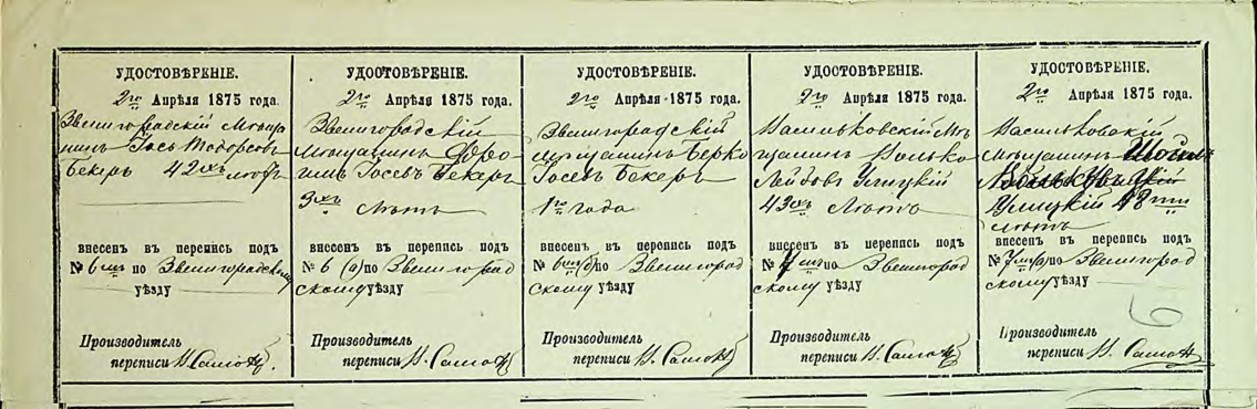 УДОСТОВѢРЕНІЕ.
2го Апрѣля 1875 года.
Звенигородскій Мѣща
нинъ Іось Тодоровъ
Бекеръ 42хъ лѣтъ
внесенъ въ перепись подъ
№ 6 по Звенигородскому
уѣзду
Производитель
переписи
УДОСТОВѢРЕНІЕ.
2го Апрѣля 1875 года.
Звенигородскій
Мѣщанинъ Фро
имъ Іосевъ Бекеръ
3хъ лѣтъ
внесенъ въ перепись подъ
№ 6 (а) по Звенигород
скому уѣзду
Производитель
переписи
УДОСТОВѢРЕНІЕ.
2го Апрѣля 1875 года.
Звенигородскій
мѣщанинъ Берко
Іосевъ Бекеръ
1го года
внесенъ въ перепись подъ
№ 6 (б) по Звенигород
скому уѣзду
Производитель
переписи
УДОСТОВѢРЕНІЕ.
2го Апрѣля 1875 года.
Васильковскій Мѣ
щанинъ Волько
Лейбовъ Улицкій
43хъ лѣтъ
внесенъ въ перепись подъ
№ по Звенигород
скому уѣзду
Производитель
переписи
УДОСТОВѢРЕНІЕ.
2го Апрѣля 1875 года.
Васильковскій
Мѣщанинъ
Улицкій 18ти
лѣтъ
внесенъ въ перепись подъ
№ 7 (а) по Звенигород
скому уѣзду
6
Производитель
переписи